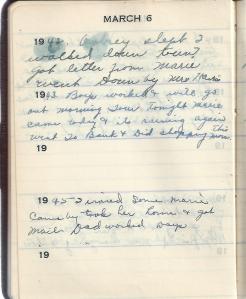 MARCH 6
1942. Aubrey slept I
walked down town
got letter from Marie
went Down by Mrs
1943 Boys worked & will go
out morning Tour tonight Marie
came today & its raining again
went To Bank & Did shopping this morn
19
1945 - I ironed Some Marie
Came by took her home & got
Mail. Dad worked Days
19